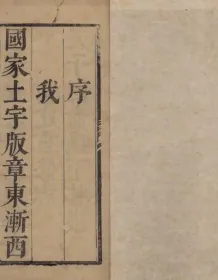 序
我
國家土宇版章東漸西